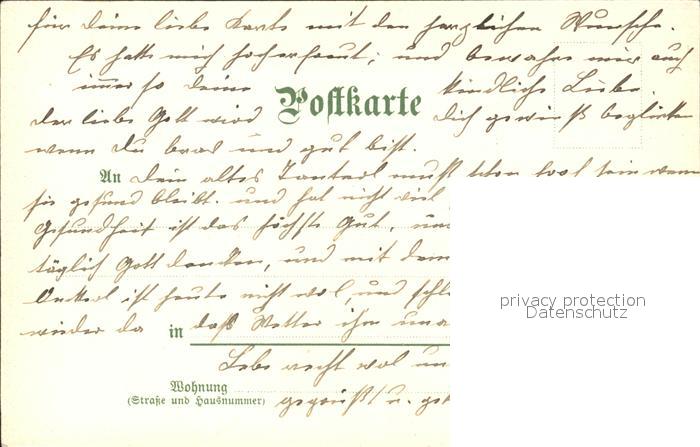 für Deine liebe Karte mit den herzlichen Wunsche.
Es hatte mich hocherfreut; und bewahre mir auch
immer so Deine kindliche Liebe.
Postkarte
Der liebe Gott wird Dich gewiß beglücken
wenn Du brav und gut bist.
An Dein altes Tanterl muß schon froh sein wenn
sie gesund bleibt. und hat nicht viel
Gesundheit ist das höchste Gut, un
täglich Gott danken, und mit dem
Onkerl ist heute nicht wol, und schl
wieder da in daß Wetter ihm una
Lebe recht wol un
Wohnung
(Straße und Hausnummer) gegrüßt u. gek
privacy protection
Datenschutz